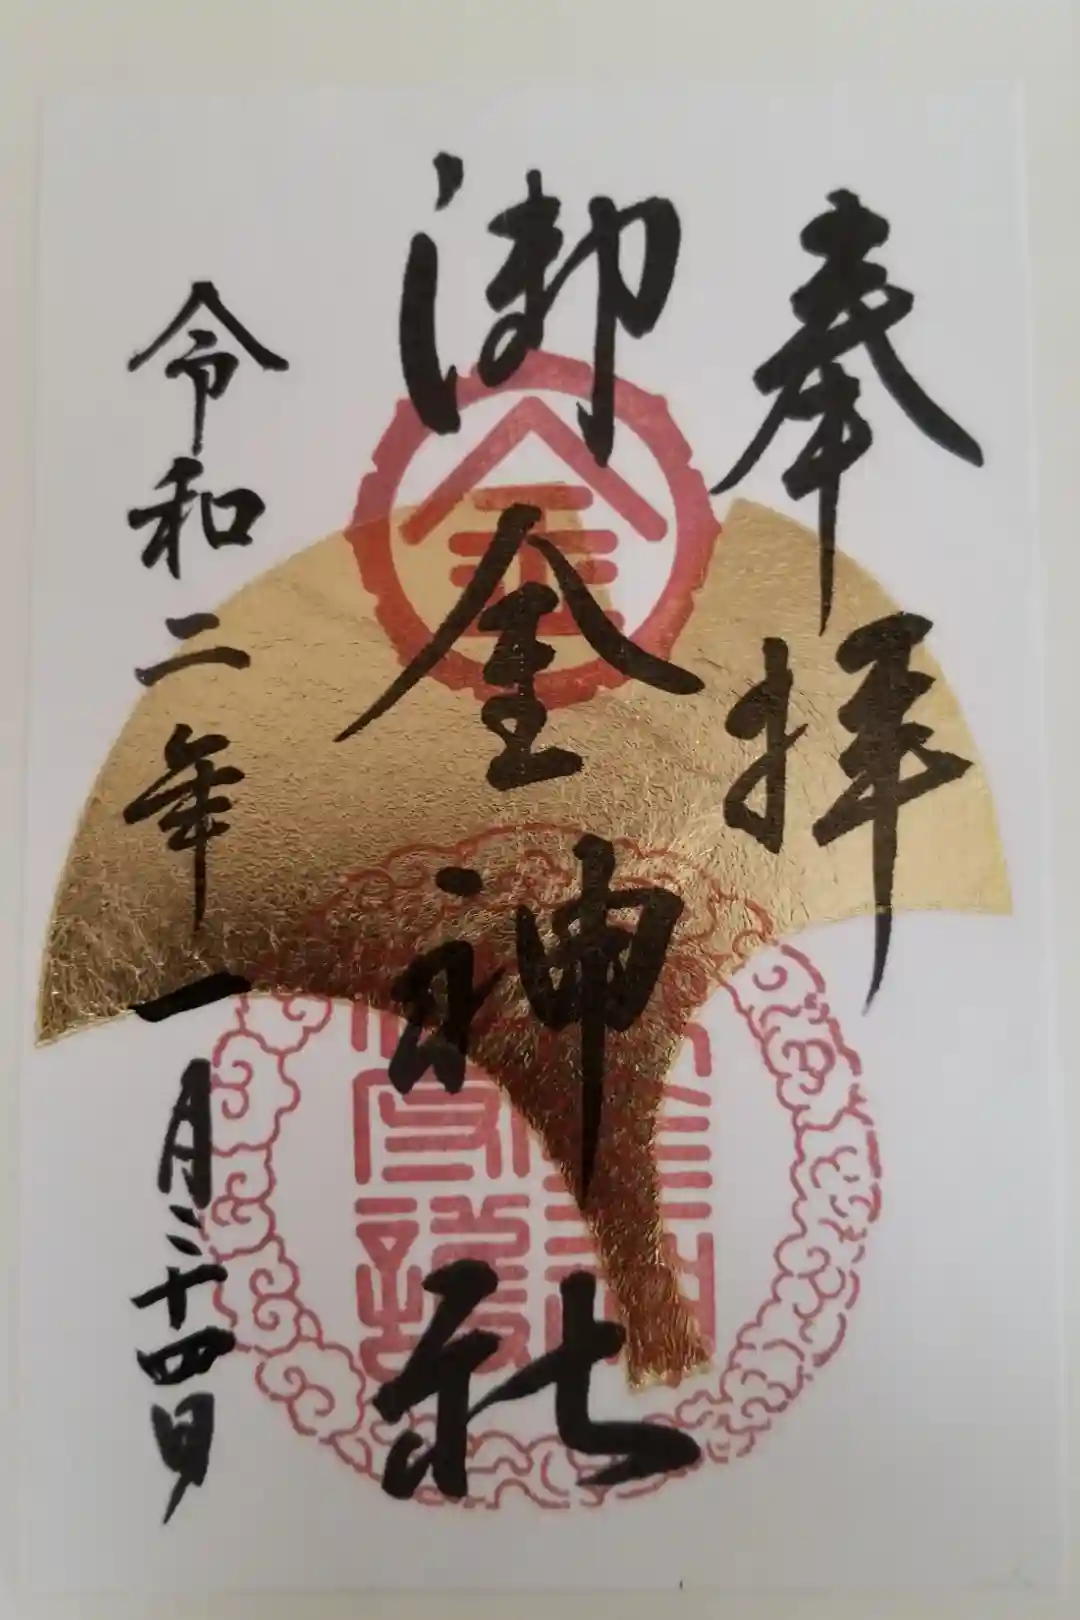 奉拝
御金神社
金
令和二年一月二十四日